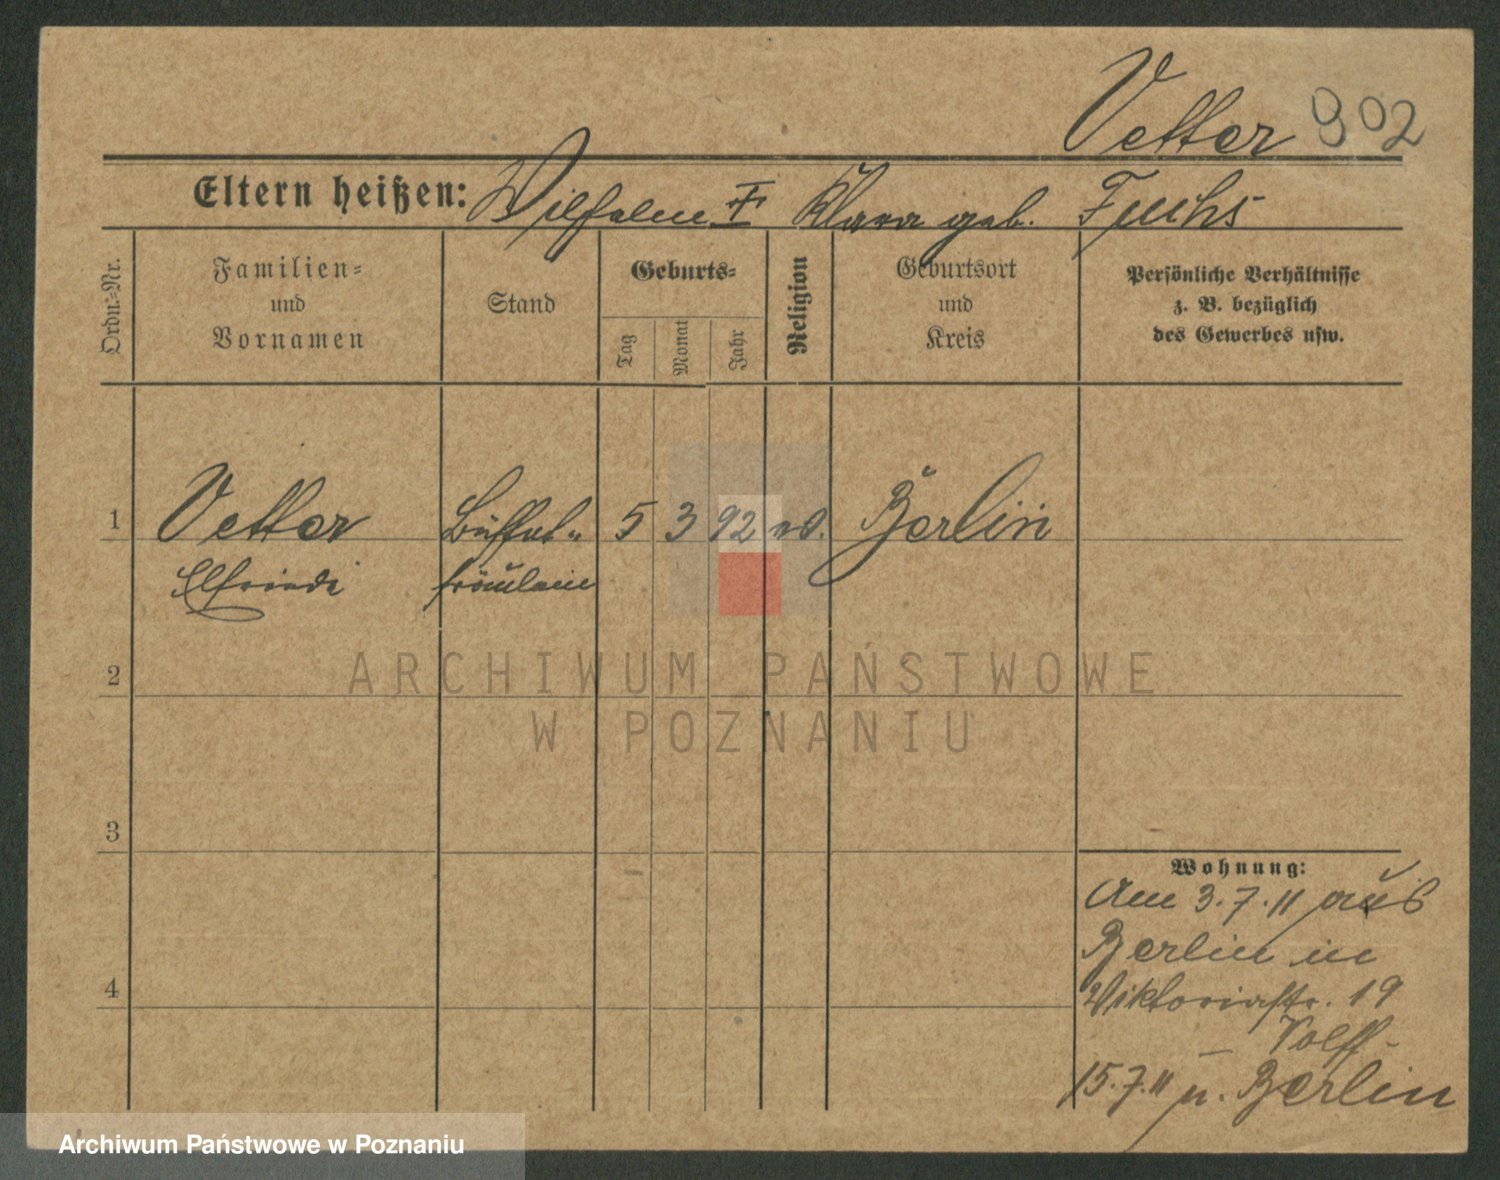 Vetter 902
Eltern heißen: Wilhelm † Klara geb. Fuchs
Ordn.=Nr.
Familien=
und
Vornamen
Stand
Geburts=
Tag
Monat
Jahr
Religion
Geburtsort
und
Kreis
Persönliche Verhältnisse
z. B. bezüglich
des Gewerbes usw.
1 Vetter Büffet= 5 3 92 ev. Berlin
Elfriede fräulein
2
ARCHIWUM PAŃSTWOWE
W POZNANIU
3
Wohnung:
Am 3.7.11 aus
Berlin in
4
Viktoriastr. 19
Wolff
15.7.11 n. Berlin
Archiwum Państwowe w Poznaniu